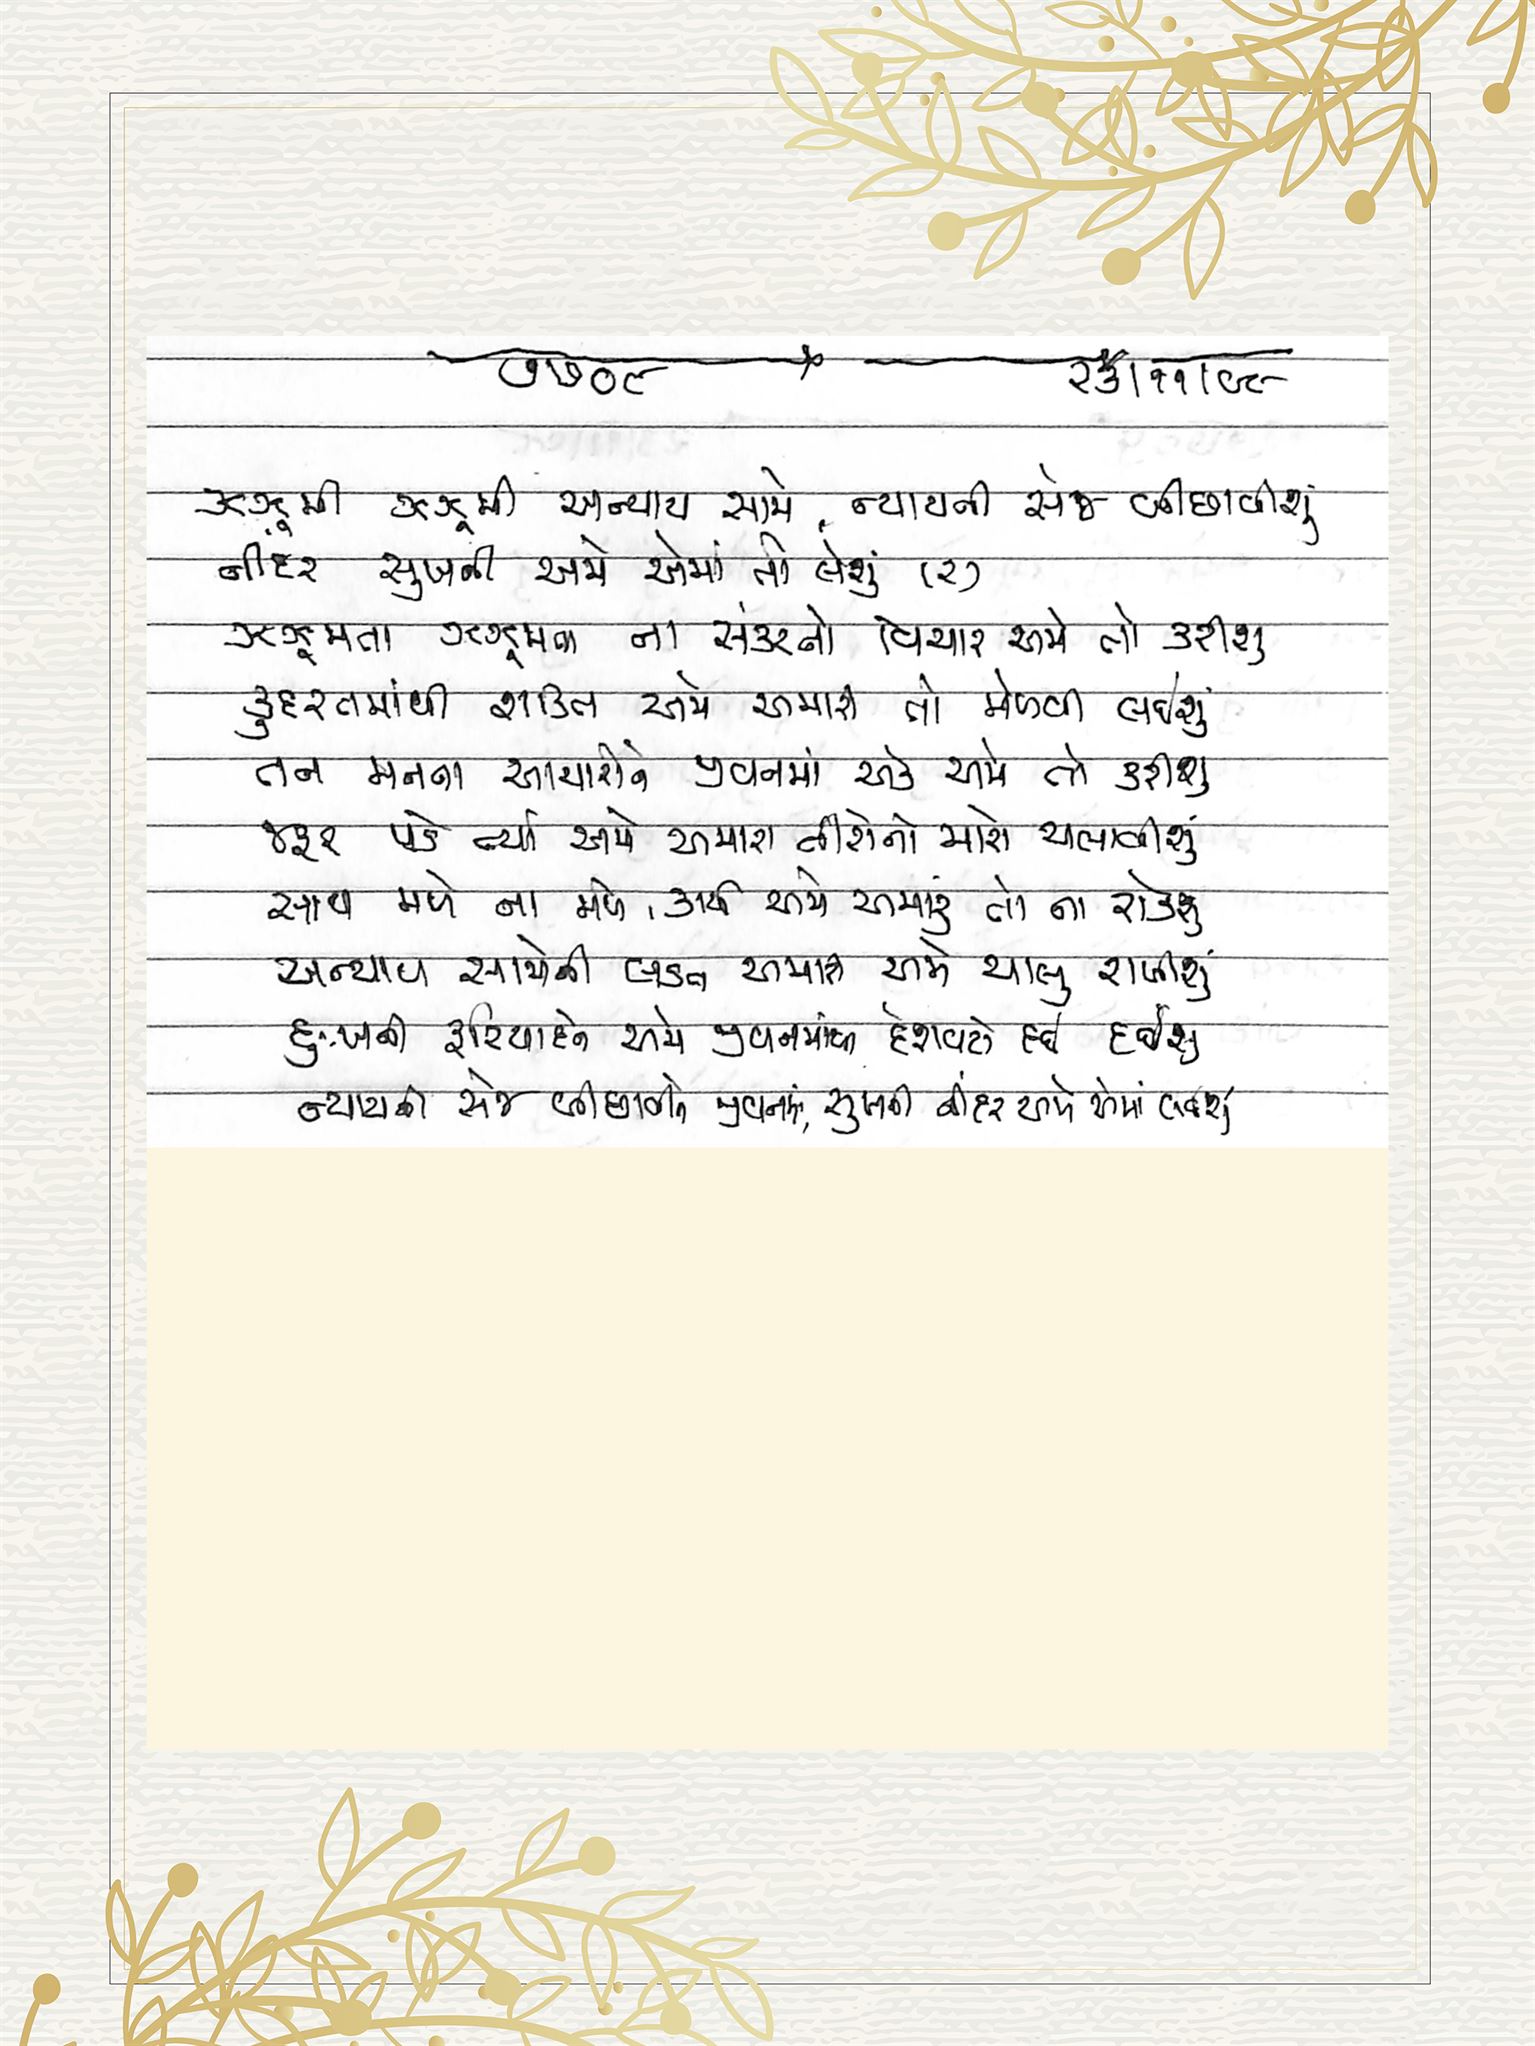 ૭૫૦૯ ૨૩/૧૧/૯૮
ઝઝૂમી ઝઝૂમી અન્યાય સામે, ન્યાયની સેજ બીછાવીશું
નીંદર સુખની અમે એમાં તો લેશું (૨)
ઝઝૂમતા ઝઝૂમતા ના સંકટનો વિચાર અમે તો કરીશું
કુદરતમાંથી શક્તિ અમે અમારી તો મેળવી લઈશું
તન મનના આચારોને જીવનમાં એક અમે તો કરીશું
જરૂર પડે ત્યાં અમે અમારા તીરોનો મારો ચલાવીશું
સાથ મળે ના મળે, કાર્ય અમે અમારું તો ના રોકશું
અન્યાય સામેની લડત અમારી અમે ચાલુ રાખીશું
દુઃખની ફરિયાદોને અમે જીવનમાંથી દેશવટો દઈ દઈશું
ન્યાયની સેજ બીછાવીને જીવનમાં, સુખની નીંદર અમે એમાં લઈશું